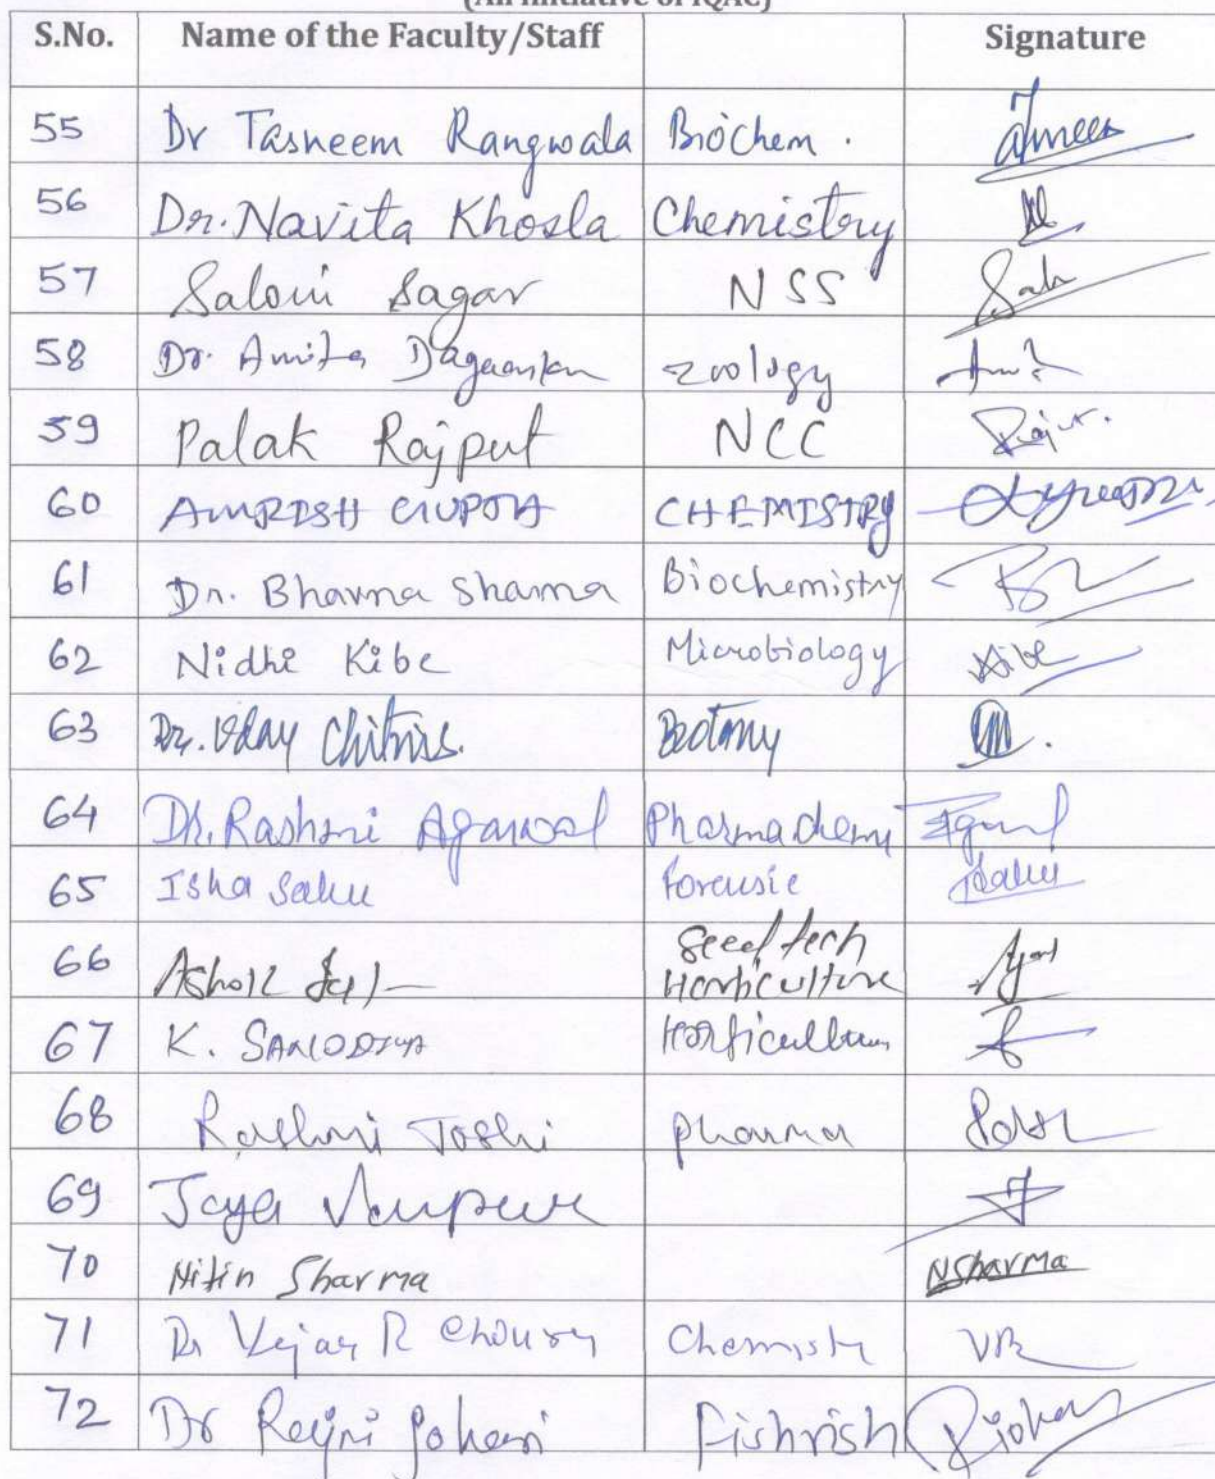 (An Initiative of IQAC)
S.No. Name of the Faculty/Staff Signature
55 Dr Tasneem Rangwala Biochem.
56 Dr. Navita Khosla Chemistry
57 Saloni Sagar NSS
58 Dr. Amita zoology
59 Palak Rajput NCC
60 AMRISH GUPTA CHEMISTRY
61 Dr. Bhavna Sharma Biochemistry
62 Nidhi Kibe Microbiology Kibe
63 Dr. Uday Chitnis. Botany
64 Dr. Rashmi Agarwal Pharmachem
65 Isha Sahu Forensic Sahu
66 Ashok Seed tech
Horticulture
67 K. Horticulture
68 Rashmi Joshi pharma
69 Jaya
70 Nitin Sharma NSharma
71 Dr Vijay R Choury VR
72 Dr Rajni Johari Fishrish